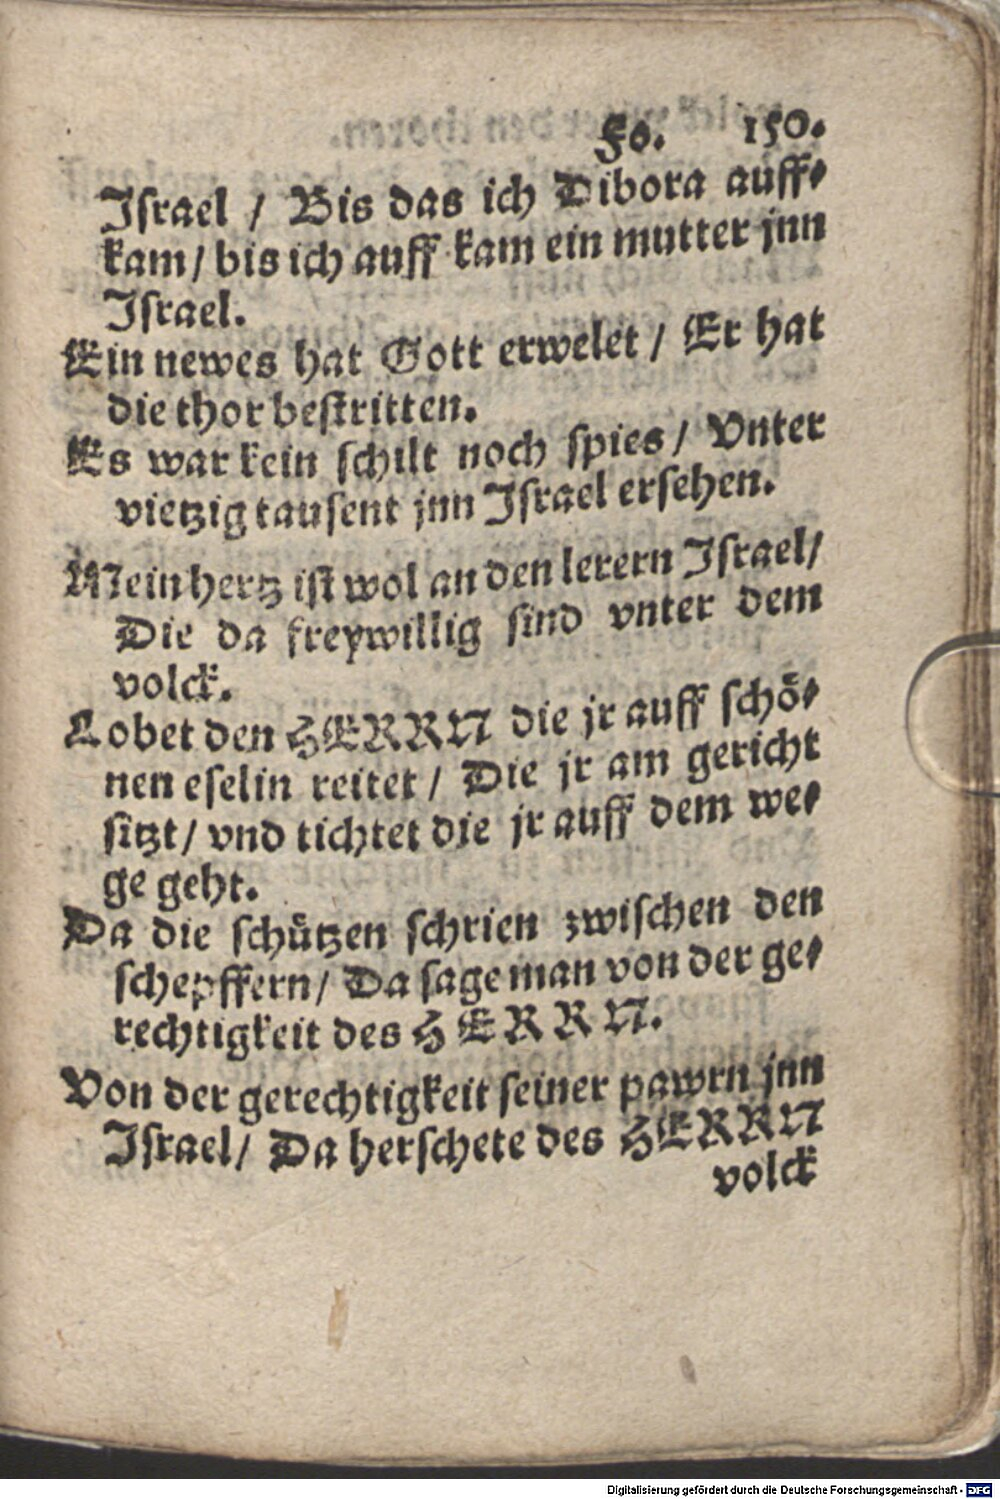 Fo. 150.
Israel / Bis das ich Dibora auff-
kam / bis ich auff kam ein mutter jnn
Israel.
Ein newes hat Gott erwelet / Er hat
die thor bestritten.
Es war kein schilt noch spies / Vnter
vietzig tausent jnn Israel ersehen.
Mein hertz ist wol an den lerern Israel /
Die da freywillig sind vnter dem
volck.
Lobet den HERRN die jr auff schö-
nen eselin reitet / Die jr am gericht
sitzt / vnd tichtet die jr auff dem we-
ge geht.
Da die schützen schrien zwischen den
schepffern / Da sage man von der ge-
rechtigkeit des HERRN.
Von der gerechtigkeit seiner pawrn jnn
Israel / Da herschete des HERRN
volck
Digitalisierung gefördert durch die Deutsche Forschungsgemeinschaft - DFG